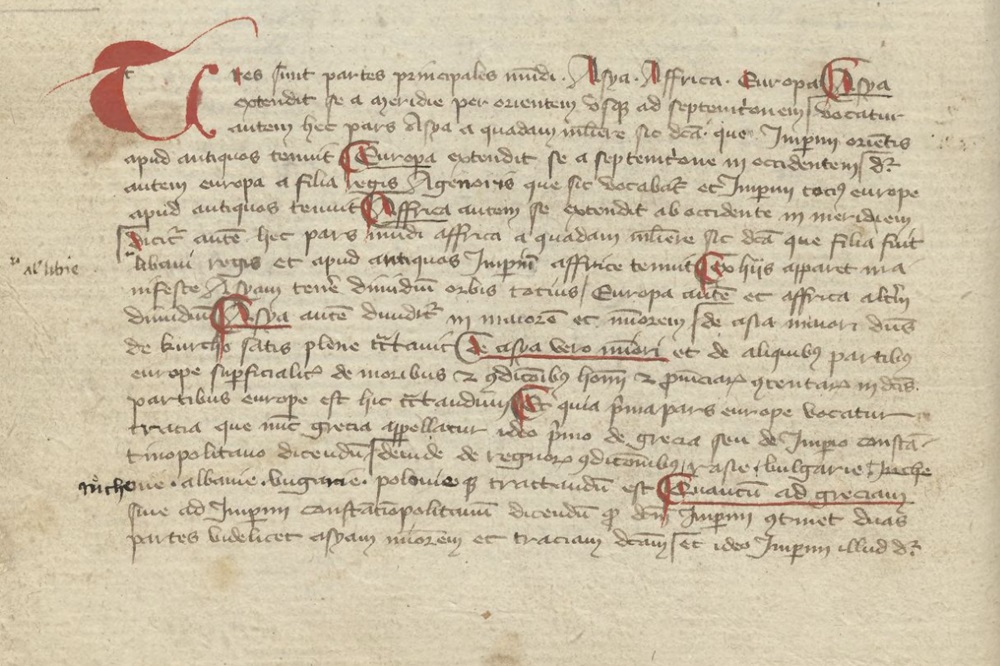 Tres sunt partes principales mūdi. Asya. Affrica. Europa Asya
extendit se a meridie per orientem vsqȝ ad septemt'onem vocatur
autem hec pars Asya a quadam mliere sic dc̄a. que Imperiū orientis
apud antiquos tenuit Europa extendit se a septemt'one in occidentem d'r
autem europa a filia regis Agenoris que sic vocabat' et Imperiū toci9 europe
apud antiquos tenuit Affrica autem se extendit ab occidente in meridiem
dicit' autē hec pars mūdi affrica a quadam mliere sic dc̄a que filia fuit
al' libie
libani regis et apud antiquos Imperiū affrice tenuit Ex hijs apparet ma
nifeste Asyam tenē dimidiū orbis tocius Europa autē et affrica alt'm
dimidiū Asya autē diuidit' in maiorē et minorem de asia minori dn̄s
de kurcho satis plene tractauit de asya vero miori et de aliquib9 partib9
europe sup'ficialit' de moribus et 9dicōib9 hom̄ et p'uinciar' 9tentar' in dc̄is
partibus europe est hic tractandum Et quia p'ma pars europe vocatur
tracia que nūc grecia appellatur ideo p'mo de grecia seu de Imp'io constā-
tinopolitano dicendū deinde de regnor' 9dicōnibus rasie. bulgarie. ruche
ruchenie. albanie. vngarie. polonie qȝ tractandū est Quantū ad greciam
siue ad Imperiū constātinopolitanū dicendū qȝ dc̄m Imperiū 9tinet duas
partes videlicet asyam miorem et traciam dc̄am et ideo Imperiū illud d'r